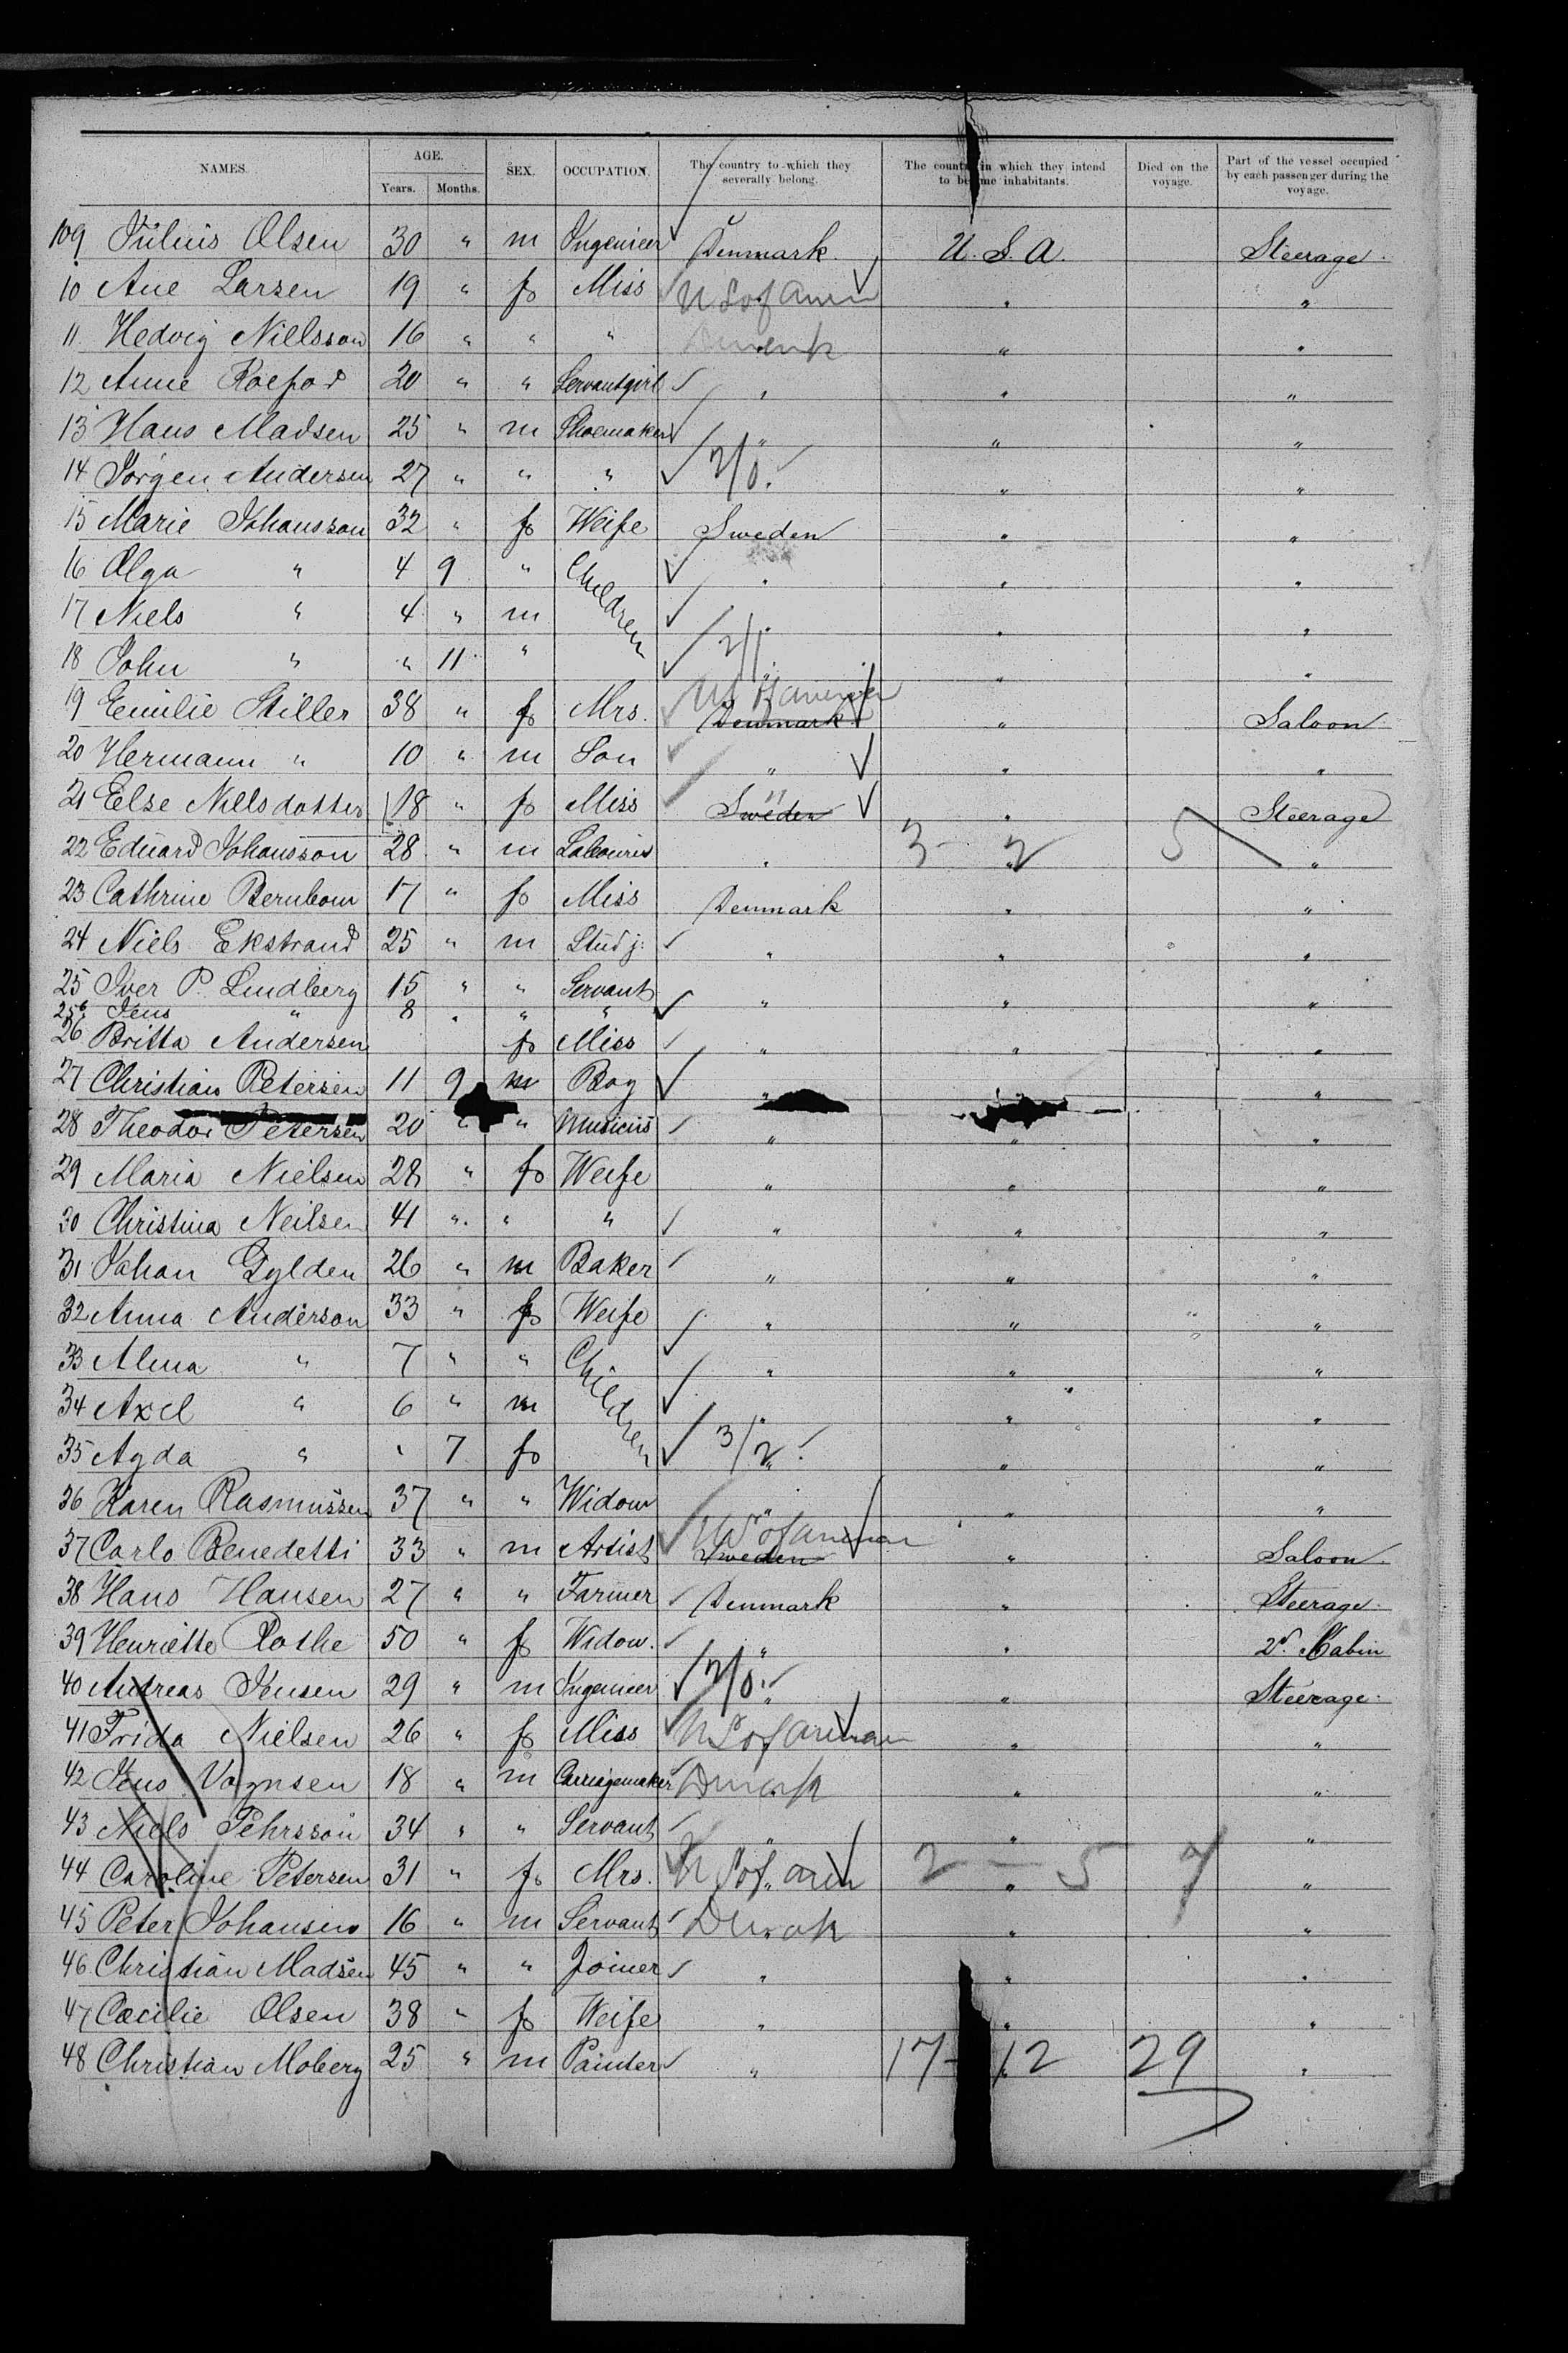 NAMES. AGE. SEX. OCCUPATION. The country to which they severally belong. The country in which they intend to become inhabitants. Died on the voyage. Part of the vessel occupied by each passenger during the voyage.
Years. Months.
109 Julius Olsen 30 " m Ingenieer Denmark. U.S.A. Steerage
10 Ane Larsen 19 " f Miss U S of Amer " "
11 Hedvig Nillsson 16 " " " Denmk " "
12 Anne Roefod 20 " " Servantgirl " " "
13 Hans Madsen 25 " m Shoemaker " " "
14 Jørgen Andersen 27 " " " 2/0. " "
15 Marie Johansson 32 " f Weife Sweden " "
16 Olga " 4 9 " Children " " "
17 Niels " 4 " m " " "
18 John " " 11 " 2/1 " " "
19 Emilie Stiller 38 " f Mrs. US of America Denmark " Saloon
20 Hermann " 10 " m Son " " "
21 Else Nillsdotter 18 " f Miss " Sweden " Steerage
22 Eduard Johansson 28 " m Labourer " 3 - 2 5 "
23 Cathrine Bernbom 17 " f Miss Denmark " "
24 Niels Ekstrand 25 " m Stud j: " " "
25 Iver P. Lindberg 15 " " Servant " " "
25b Jens " 8 " " "
26 Britta Andersen f Miss " " "
27 Christian Petersen 11 9 m Boy " " "
28 Theodor Petersen 20 " " Musicus " " "
29 Maria Nielsen 28 " f Weife " " "
30 Christina Neilsen 41 " " " " " "
31 Johan Gylden 26 " m Baker " " "
32 Anna Anderson 33 " f Weife " " "
33 Alma " 7 " " Children " " "
34 Axel " 6 " m " " "
35 Agda " " 7 f 3/2 " " "
36 Karen Rasmussen 37 " " Widow " " "
37 Carlo Benedetti 33 " m Artist US of American Sweden " Saloon
38 Hans Hansen 27 " " Farmer Denmark " Steerage
39 Henriette Rothe 50 " f Widow. " " 2d. Cabin
40 Andreas Jensen 29 " m Ingenieer 2/0. " " Steerage
41 Frida Nielsen 26 " f Miss U S of American " "
42 Jens Vognsen 18 " m Carriagemaker Dmark " "
43 Niels Pehrsson 34 " " Servant " " "
44 Caroline Petersen 31 " f Mrs. U S of Amer 2 - 5 7 "
45 Peter Johansen 16 " m Servant Dmark " "
46 Christian Madsen 45 " " Joiner " " "
47 Cæcilie Olsen 38 " f Weife " " "
48 Christian Moberg 25 " m Painter " 17 - 12 29 "